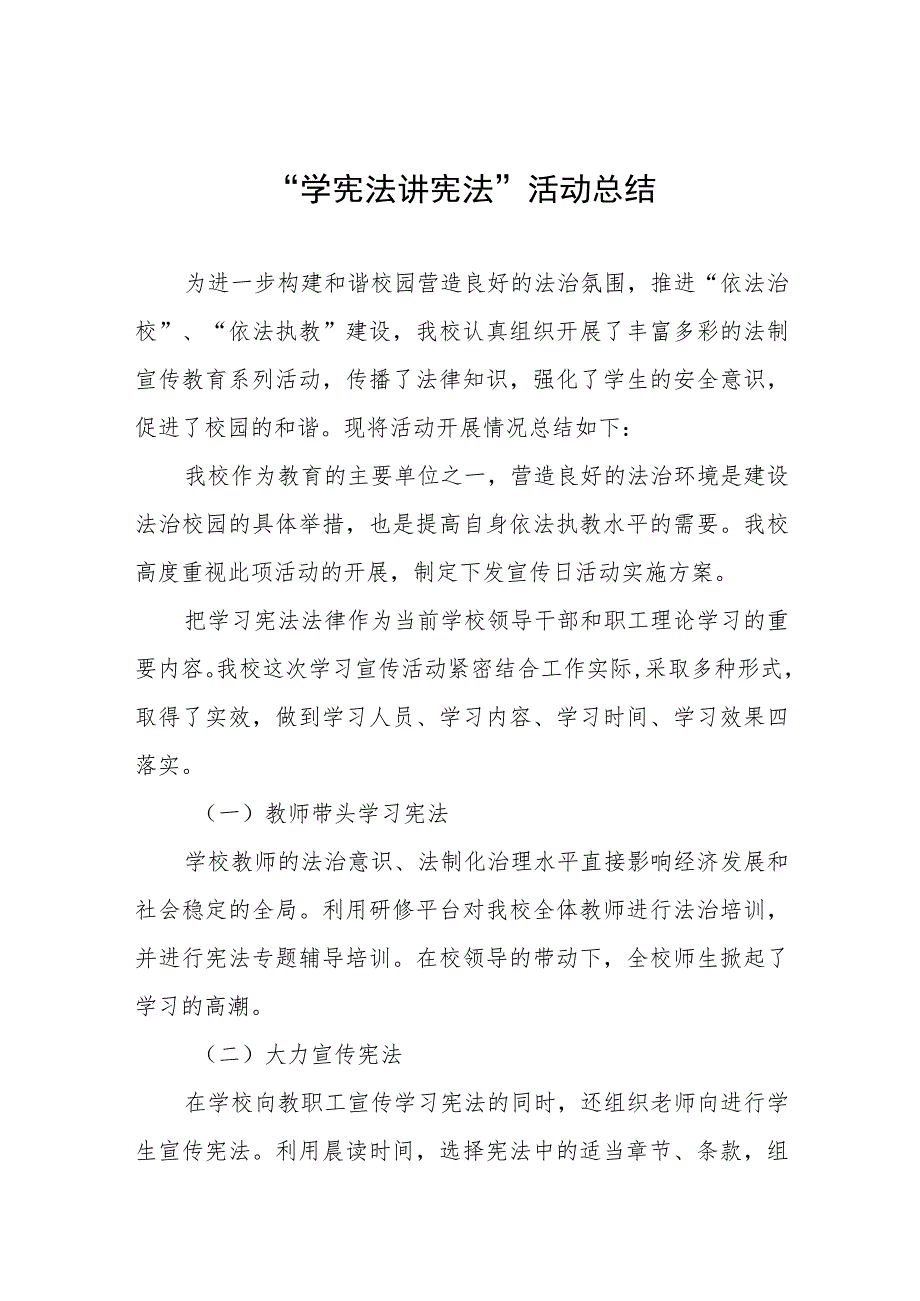 “学宪法讲宪法”活动总结
为进一步构建和谐校园营造良好的法治氛围，推进“依法治
校”、“依法执教”建设，我校认真组织开展了丰富多彩的法制
宣传教育系列活动，传播了法律知识，强化了学生的安全意识，
促进了校园的和谐。现将活动开展情况总结如下：
我校作为教育的主要单位之一，营造良好的法治环境是建设
法治校园的具体举措，也是提高自身依法执教水平的需要。我校
高度重视此项活动的开展，制定下发宣传日活动实施方案。
把学习宪法法律作为当前学校领导干部和职工理论学习的重
要内容。我校这次学习宣传活动紧密结合工作实际,采取多种形式，
取得了实效，做到学习人员、学习内容、学习时间、学习效果四
落实。
（一）教师带头学习宪法
学校教师的法治意识、法制化治理水平直接影响经济发展和
社会稳定的全局。利用研修平台对我校全体教师进行法治培训，
并进行宪法专题辅导培训。在校领导的带动下，全校师生掀起了
学习的高潮。
（二）大力宣传宪法
在学校向教职工宣传学习宪法的同时，还组织老师向进行学
生宣传宪法。利用晨读时间，选择宪法中的适当章节、条款，组